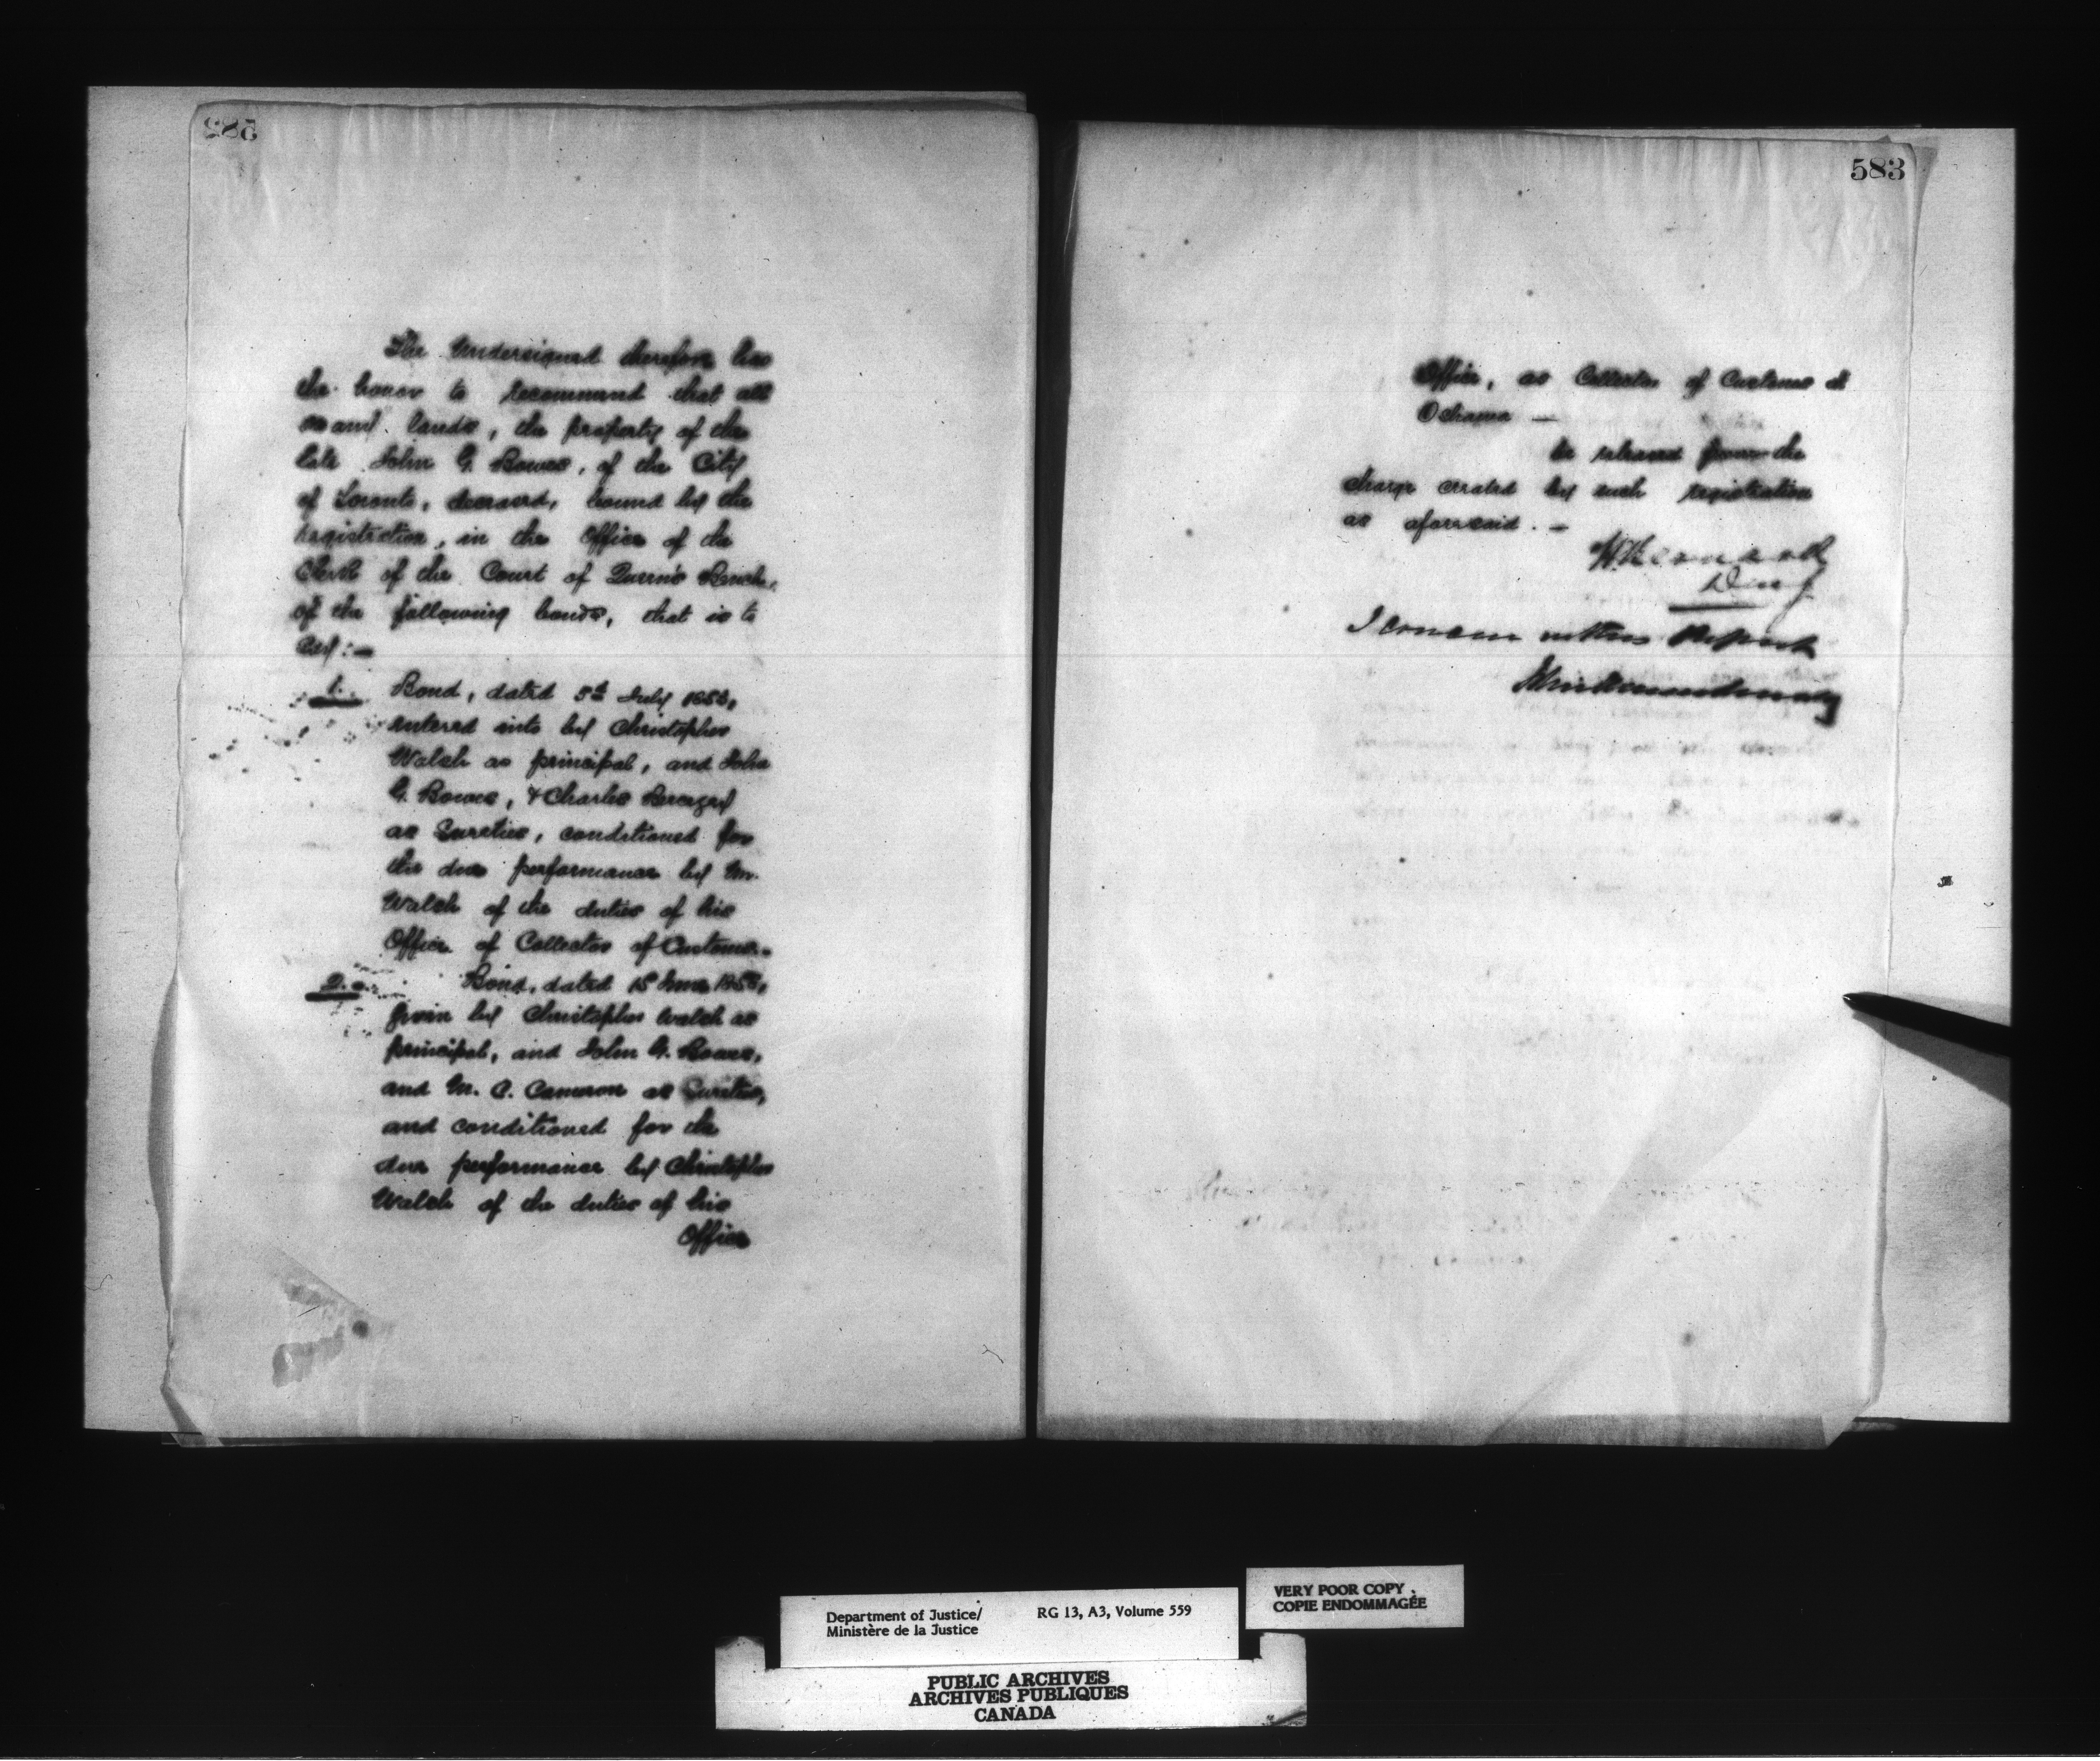 582
The Undersigned therefore has
the honor to recommend that all
and lands, the property of the
late John G. Bowes, of the City
of Toronto, deceased, bound by the
registration, in the Office of the
Clerk of the Court of Queen's Bench,
of the following bonds, that is to
say:—
1. Bond, dated 5th July
entered into by Christopher
Walsh as principal, and John
G. Bowes, & Charles Berczy
as Sureties, conditioned for
the due performance by Mr.
Walsh of the duties of his
Office of Collector of Customs.
2. Bond, dated 15 June
given by Christopher Walsh as
principal, and John G. Bowes,
and M. C. Cameron as Sureties,
and conditioned for the
due performance by Christopher
Walsh of the duties of his
Office
583
Office, as Collector of Customs at
Oshawa —
be released from the
charge created by such registration
as aforesaid. —
H Bernard
I concur in this Report
Department of Justice/
Ministère de la Justice
RG 13, A3, Volume 559
VERY POOR COPY
COPIE ENDOMMAGÉE
PUBLIC ARCHIVES
ARCHIVES PUBLIQUES
CANADA